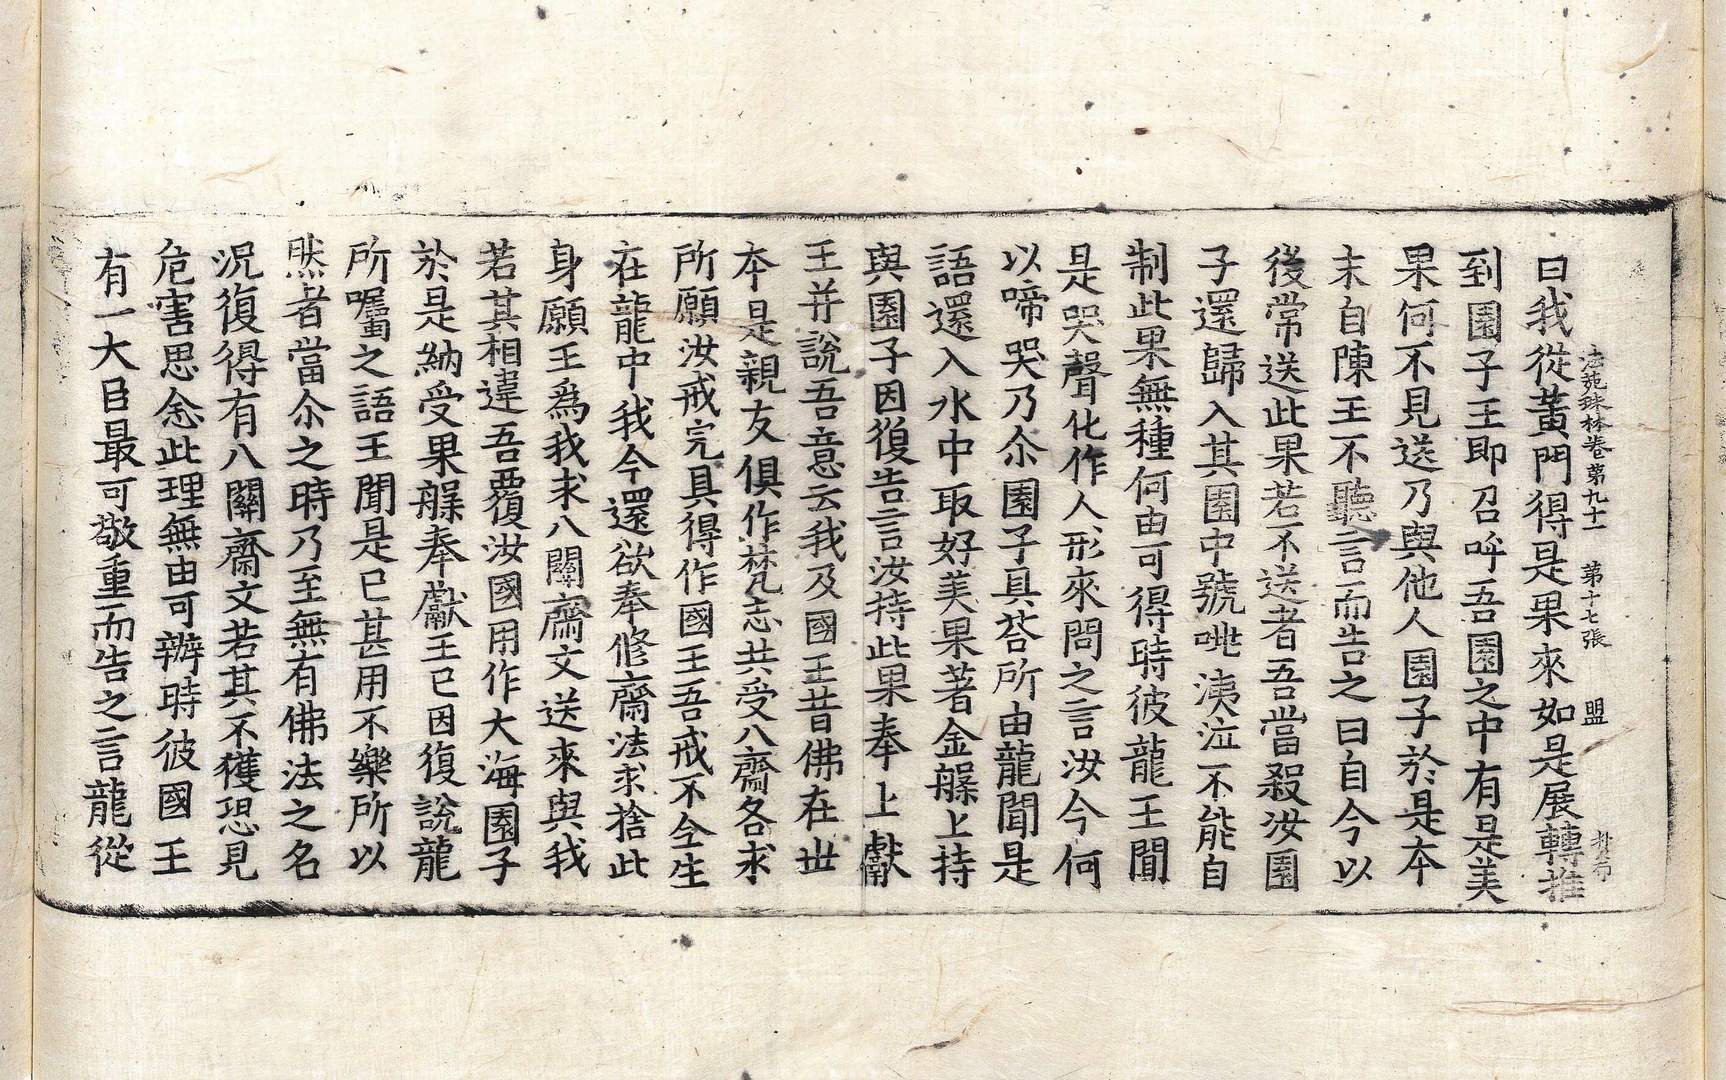 法苑珠林卷第九十一 第十七張 盟
曰我從黃門得是果來如是展轉推
到園子王即召呼吾園之中有是美
果何不見送乃與他人園子於是本
末自陳王不聽言而告之曰自今以
後常送此果若不送者吾當殺汝園
子還歸入其園中號咷洟泣不能自
制此果無種何由可得時彼龍王聞
是哭聲化作人形來問之言汝今何
以啼哭乃尒園子具荅所由龍聞是
語還入水中取好美果著金槃上持
與園子因復告言汝持此果奉上獻
王并說吾意云我及國王昔佛在世
本是親友俱作梵志共受八齋各求
所願汝戒完具得作國王吾戒不全生
在龍中我今還欲奉修齋法求捨此
身願王為我求八關齋文送來與我
若其相違吾覆汝國用作大海園子
於是納受果槃奉獻王已因復說龍
所囑之語王聞是已甚用不樂所以
然者當尒之時乃至無有佛法之名
況復得有八關齋文若其不獲恐見
危害思念此理無由可辦時彼國王
有一大臣最可敬重而告之言龍從